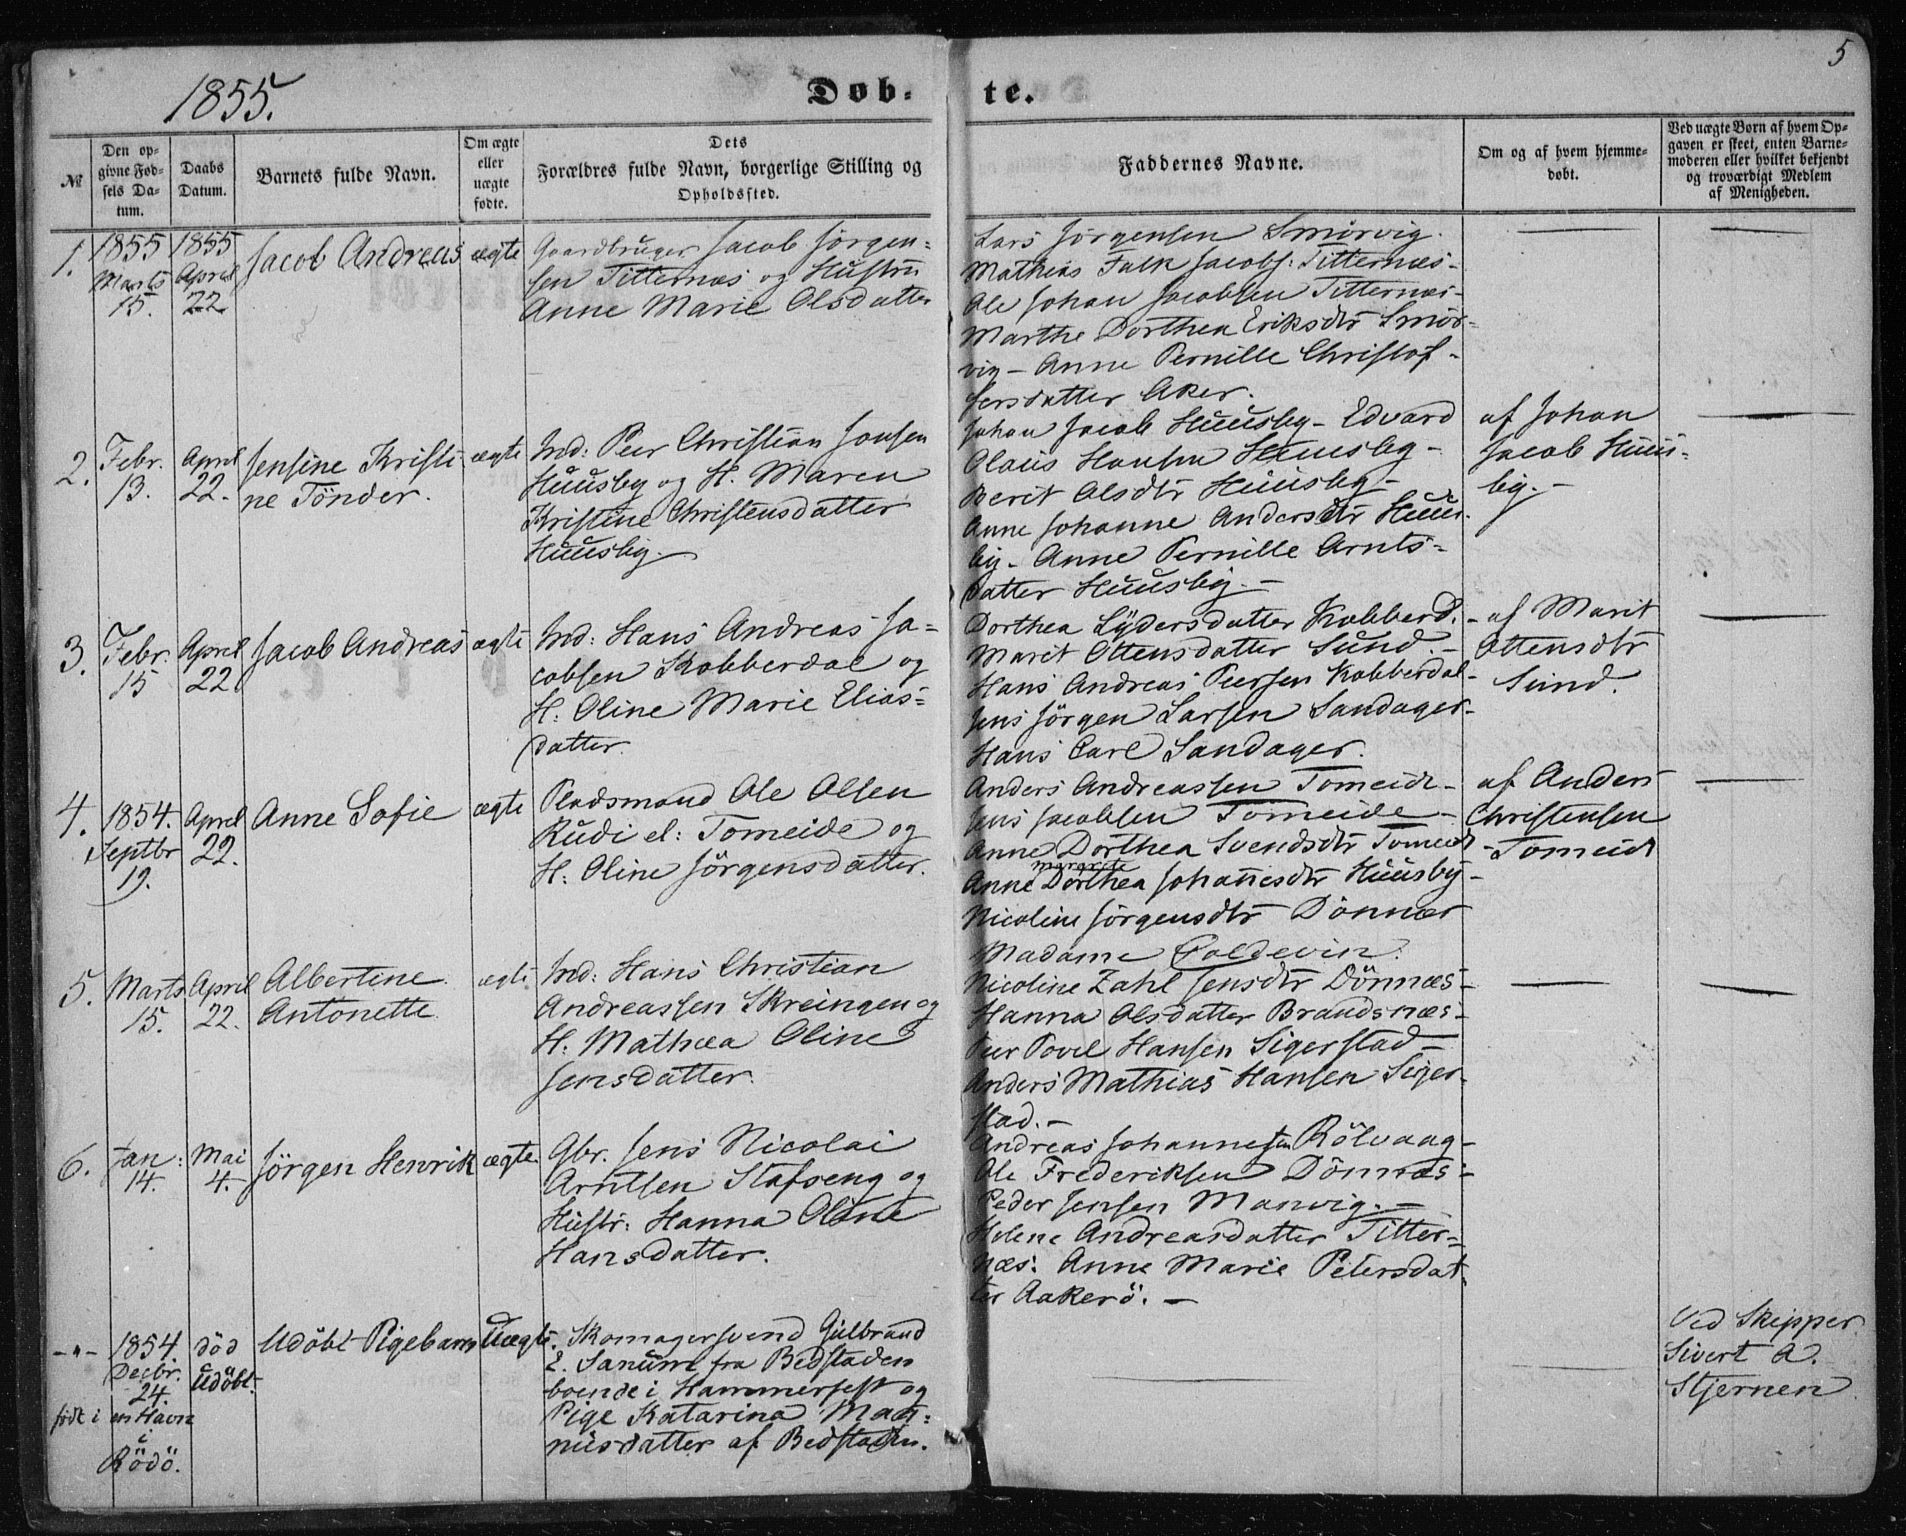 5
1855.
Døb-
te.
№
Den op-
givne Fød-
sels Da-
tum.
Daabs
Datum.
Barnets fulde Navn.
Om ægte
eller
uægte
fødte.
Dets
Forældres fulde Navn, borgerlige Stilling og
Opholdssted.
Faddernes Navne.
Om og af hvem hjemme-
døbt.
Ved uægte Børn af hvem Op-
gaven er skeet, enten Barne-
moderen eller hvilket bekjendt
og troværdigt Medlem
af Menigheden.
1.
1855
Marts
15.
1855
April
22.
Jacob Andreas
ægte
Gaardbruger Jacob Jörgen-
sen Titternæs og Hustru
Anne Marie Olsdatter
Lars Jörgensen Smörvig.
Mathias Falk Jacobs: Titternæs-
Ole Johan Jacobsen Titternæs-
Marthe Dorthea Eriksdtr Smör-
vig - Anne Pernille Christof-
fersdatter Aker.
2.
Febr.
13.
April
22.
Jensine Kristi-
ne Tönder.
ægte
Ind: Peer Christian Jonsen
Huusby og H. Maren
Kristine Christensdatter
Huusby.
Johan Jacob Huusby - Edvard
Olaus Hansen Huusby -
Berit Olsdtr Huusby -
Anne Johanne Andersdtr Huus-
by - Anne Pernille Arnts-
datter Huusby. -
af Johan
Jacob Huus-
by. -
3.
Febr:
15
April
22
Jacob Andreas
ægte
Ind: Hans Andreas Ja-
cobsen Kobberdal og
H: Oline Marie Elias-
datter.
Dorthea Lydersdatter Kobberd. -
Marit Ottensdatter Sund. -
Hans Andreas Peersen Kobberdal -
Jens Jörgen Larsen Sandager -
Hans Carl Sandager.
af Marit
Ottensdtr
Sund.
4.
1854.
Septbr
19.
April
22.
Anne Sofie
ægte
Pladsmand Ole Olsen
Rudi el: Tomeide og
H: Oline Jörgensdatter.
Anders Andreassen Tomeide -
Jens Jacobsen Tomeide -
Anne Dorthea Svendsdtr Tomeid -
Margrete
Anne Dorthea Johannesdtr Huusby -
Nicoline Jörgensdtr Dönnæs
Madame Coldevin.
af Anders
Christensen
Tomeid
5.
Marts
15.
April
22.
Albertine
Antonette
ægte
Ind: Hans Christian
Andreassen Skreingen og
H. Mathea Oline
Jensdatter.
Nicoline Zahl Jensdtr Dönnæs -
Hanna Olsdatter Brandsnæs -
Peer Povel Hansen Sigerstad -
Anders Mathias Hansen Siger-
stad. -
6.
Jan:
14.
Mai
4.
Jörgen Henrik
ægte.
Gbr. Jens Nicolai
Arntsen Stafseng og
Hustr: Hanna Oline
Hansdatter.
Andreas Johannesen Rölvaag -
Ole Frederiksen Dönnæs -
Peder Jensen Manvig. -
Helene Andreasdatter Titter-
næs. Anne Marie Petersdat-
ter Aakerö. -
- " -
1854
Decbr.
24
födt i en Havn
i
Rödö.
död
Udöbt.
Udöbt Pigebarn
Uægte.
Skomagersvend Gulbrand
E. Sanum fra Bedstaden
boende i Hammerfest og
Pige Katarina Mag-
nusdatter af Bedstaden.
Ved Skipper
Sivert A.
Stjernen